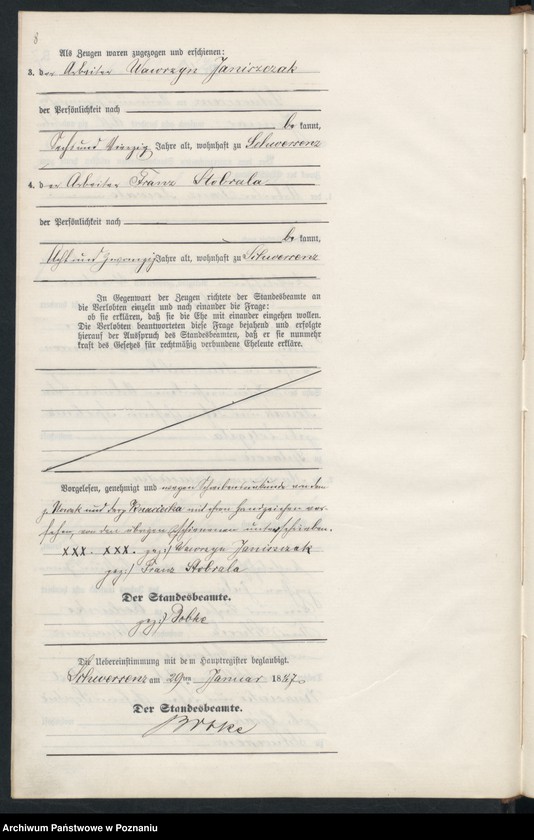 8
Als Zeugen waren zugezogen und erschienen:
3. der Arbeiter Wawrzyn Janiszczak
der Persönlichkeit nach
be kannt,
Sechs und vierzig Jahre alt, wohnhaft zu Schwersenz
4. der Arbeiter Franz Stobrala
der Persönlichkeit nach
be kannt,
Acht und zwanzig Jahre alt, wohnhaft zu Schwersenz
In Gegenwart der Zeugen richtete der Standesbeamte an
die Verlobten einzeln und nach einander die Frage:
ob sie erklären, daß sie die Ehe mit einander eingehen wollen.
Die Verlobten beantworteten diese Frage bejahend und erfolgte
hierauf der Ausspruch des Standesbeamten, daß er sie nunmehr
kraft des Gesetzes für rechtmäßig verbundene Eheleute erkläre.
Vorgelesen, genehmigt und wegen Schreibensunkunde von dem
p. Nowak und der p. mit ihren Handzeichen ver-
sehen, von den übrigen Erschienenen unterschrieben.
XXX. XXX. gez:) Wawrzyn Janiszczak
gez:) Franz Stobrala
Der Standesbeamte.
gez:)
Die Uebereinstimmung mit dem Hauptregister beglaubigt.
Schwersenz am 29ten Januar 18
Der Standesbeamte.
Archiwum Państwowe w Poznaniu